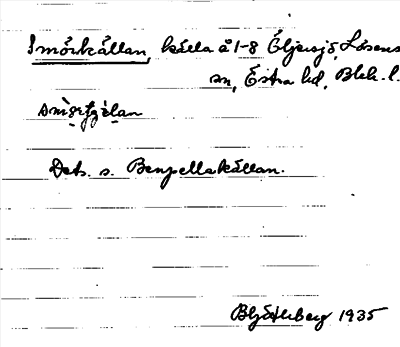 Smörkällan, källa å 1-8 Öljersjö, Lösens
sn, Östra hd, Blek. l.
Dets. s. Bengellakällan.
1935